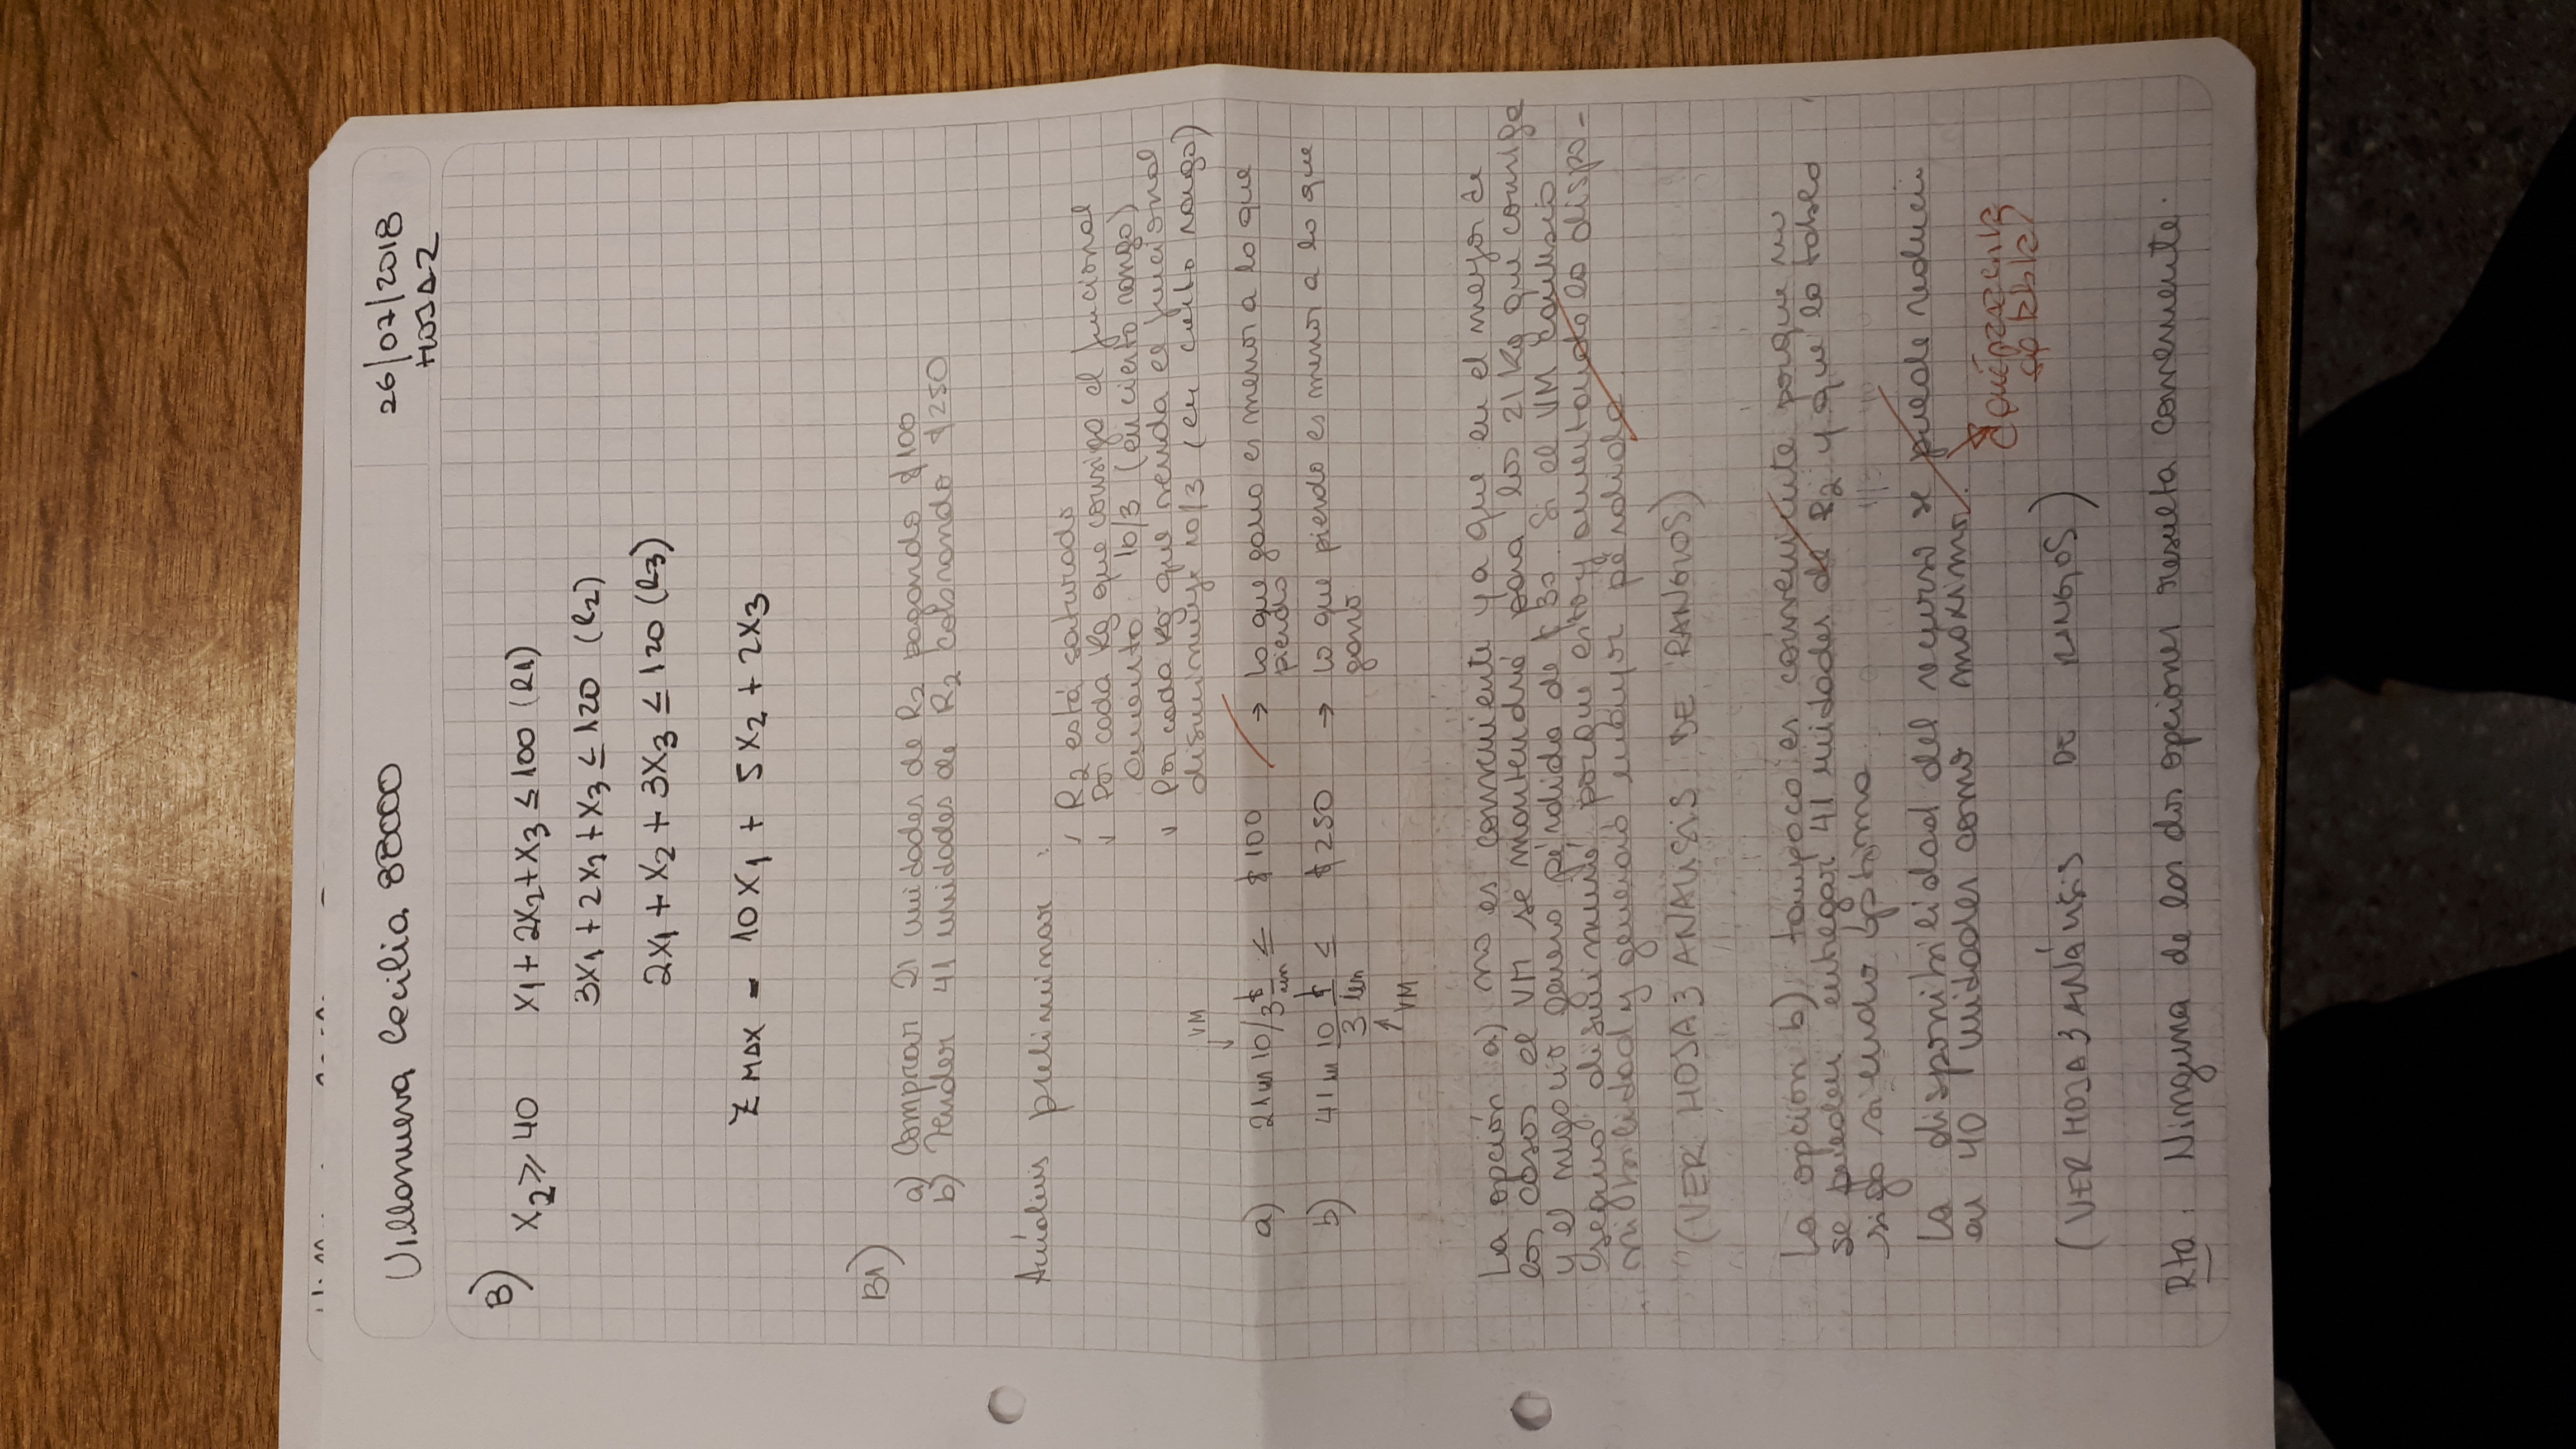 Villanueva Cecilia 88000
26/07/2018
HOJA 2
B)
X2 ≥ 40 X1 + 2X2 + X3 ≤ 100 (R1)
3X1 + 2X2 + X3 ≤ 120 (R2)
2X1 + X2 + 3X3 ≤ 120 (R3)
Z MAX = 10X1 + 5X2 + 2X3
B1)
a) Comprar 21 unidades de R2 pagando $100
b) Vender 41 unidades de R2 cobrando $250
Análisis preliminar :
✓ R2 está saturado
✓ Por cada kg que consiga el funcional
aumenta 10/3 (en cierto rango)
✓ Por cada kg que venda el funcional
disminuye 10/3 (en cierto rango)
VM
↓
a) 21 un 10/3 $/un ≤ $100 → lo que gano es menor a lo que
pierdo
b) 41 un 10/3 $/un ≤ $250 → lo que pierdo es menor a lo que
gano
↑ VM
La opción a) no es conveniente ya que en el mejor de
los casos el VM se mantendrá para los 21 kg que consiga
y el negocio genera pérdida de $30. Si el VM cambia
seguro disminuirá porque estoy aumentando la dispo-
nibilidad y generará mayor pérdida
(VER HOJA 3 ANÁLISIS DE RANGOS)
La opción b) tampoco es conveniente porque no
se pueden entregar 41 unidades de R2 y que la tabla
siga siendo óptima.
La disponibilidad del recurso se puede reducir
en 40 unidades como máximo.
(VER HOJA 3 ANÁLISIS DE RANGOS)
Rta: Ninguna de las dos opciones resulta conveniente.